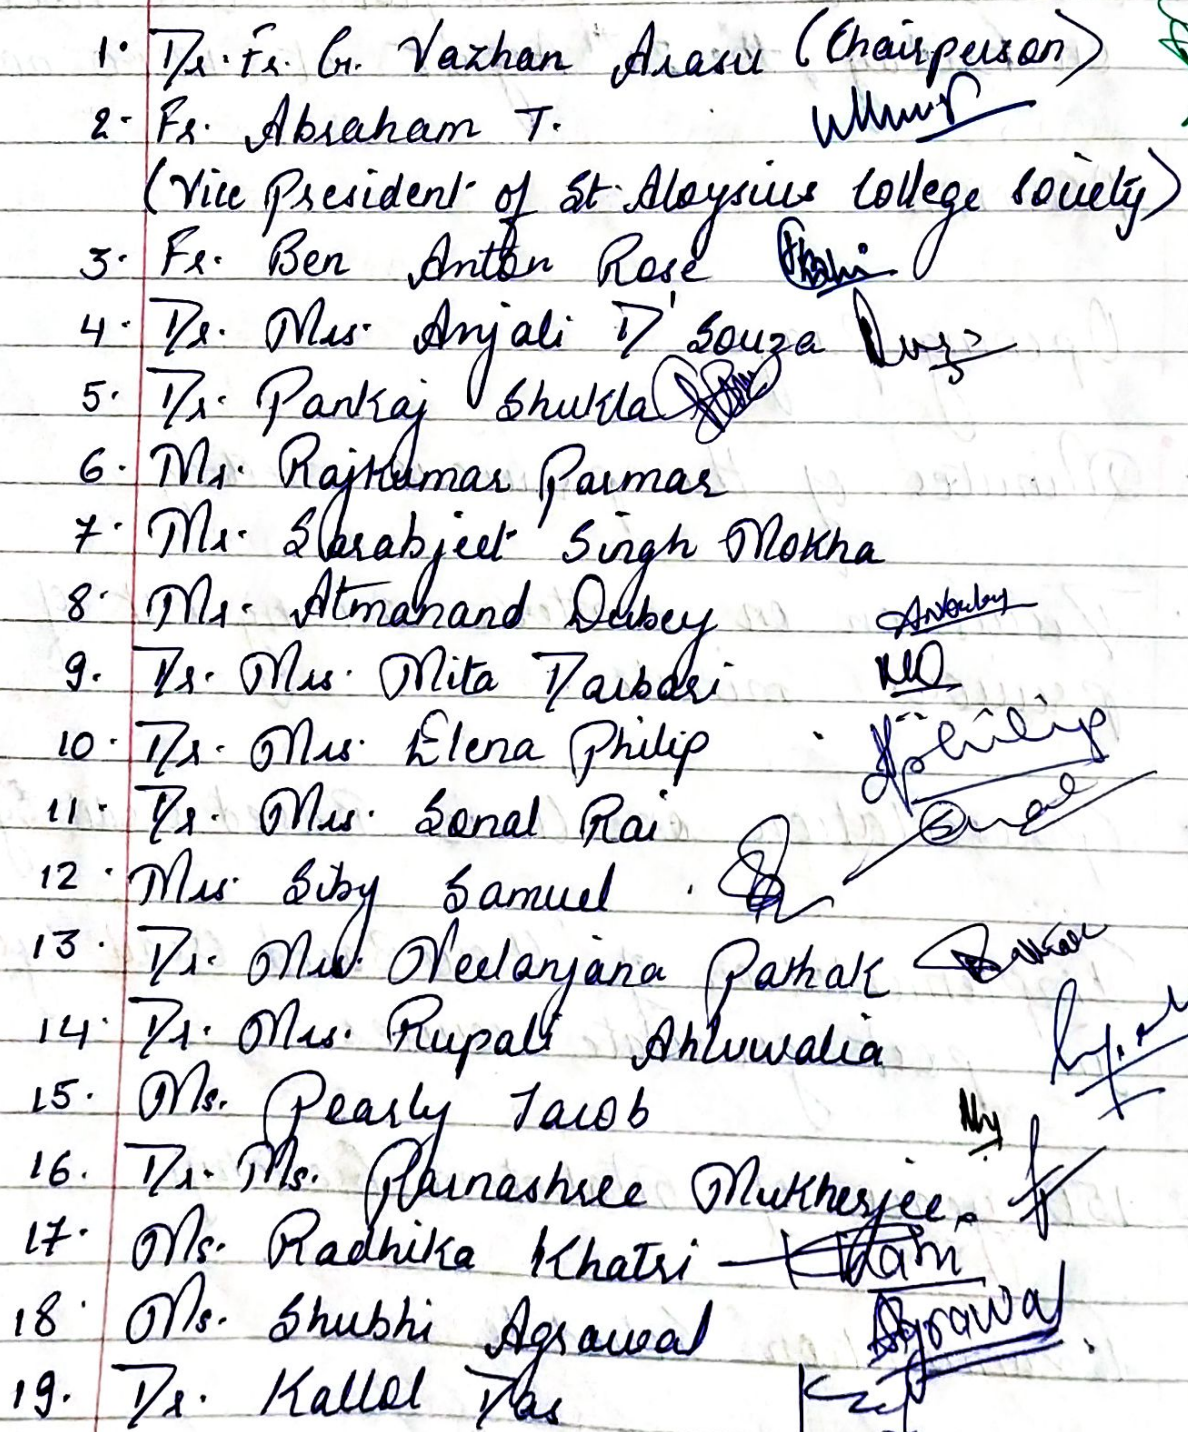 1. Dr. Fr. G. Vazhan Arasu (Chairperson)
2. Fr. Abraham T.
(Vice President of St. Aloysius College Society)
3. Fr. Ben Anton Rose
4. Dr. Mrs. Anjali D'Souza
5. Dr. Pankaj Shukla
6. Mr. Rajkumar Parmar
7. Mr. Sarabjeet Singh Mokha
8. Mr. Atmanand Dubey
9. Dr. Mrs. Mita Darbari
10. Dr. Mrs. Elena Philip Philip
11. Dr. Mrs. Sonal Rai
12. Mrs. Siby Samuel
13. Dr. Mrs. Neelanjana Pathak
14. Dr. Mrs. Rupali Ahluwalia
15. Ms. Pearly Jacob
16. Dr. Ms. Parnashree Mukherjee.
17. Ms. Radhika Khatri
18. Ms. Shubhi Agrawal Agrawal
19. Dr. Kallol Das